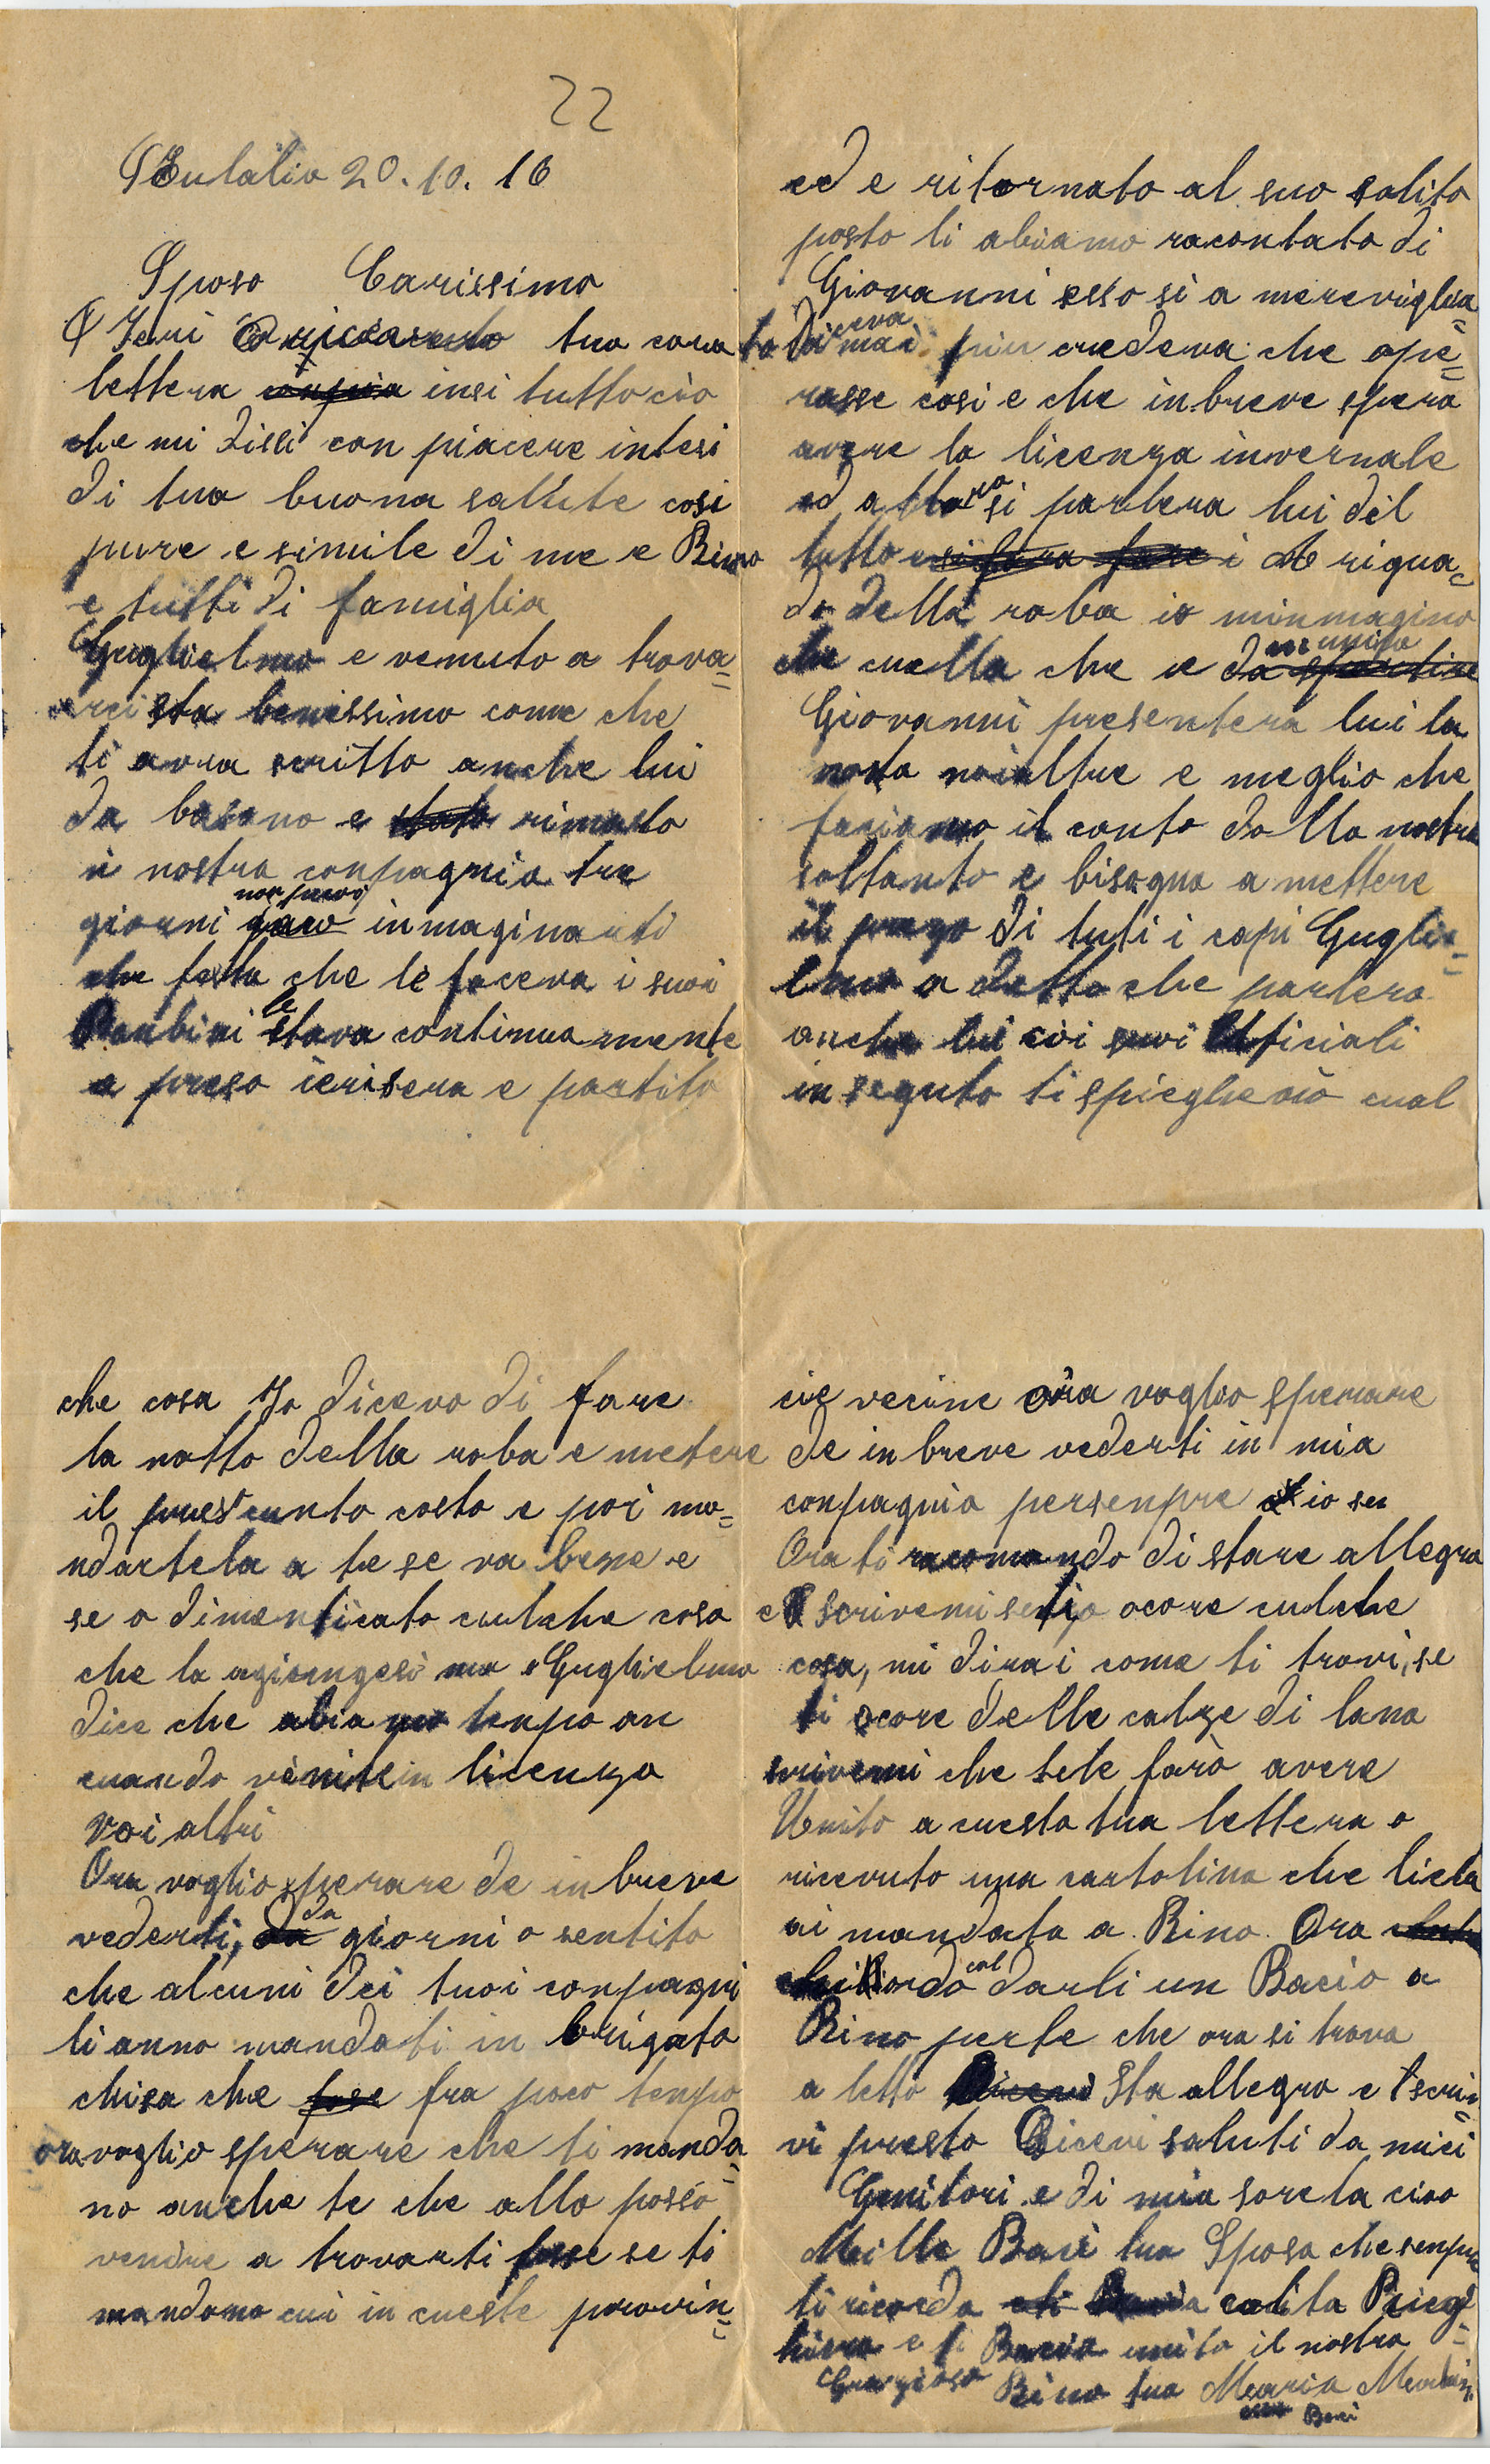 22
S Eulalia 20. 10. 16
Sposo Carissimo
Ieri o ricevuto tua cara
lettera insi tutto ciò
che mi dissi con piacere intesi
di tua buona sallute cosi
pure e simile di me e Rino
e tutti di famiglia
Guglielmo e venuto a trova=
rci sta benissimo come che
ti avra scritto anche lui
da basano e stato rimasto
i nostra conpagnia tre
giorni non puoi inmaginarti
che festa che le faceva i suoi
Banbini le stava continuamente
a preso ierisera e partito
ed e ritornato al suo solito
posto li abiamo racontato di
Giovanni esso si a mereviglia=
to diceva mai piu credeva che ope=
rasse cosi e che inbreve spera
avere la licenza invernale
ed allora si parlera lui del
tutto si fara fare i A rigua=
do della roba io minmagino
che cuella che e da spartire unito
Giovanni presentera lui la
nota noialtre e meglio che
faciamo il conto dalla nostra
soltanto e bisogna a mettere
il prezo di tuti i capi Guglie=
lmo a detto che parlera
anche lui coi suoi Uficiali
in seguto ti spiegherò cual
che cosa Io dicevo di fare
la notta della roba e metere
il presicunto costo e poi ma=
ndartela a te se va bene e
se o dimenticato cualche cosa
che la agiongesi ma Guglielmo
dice che abiamo tenpo an
cuando venite in licenza
voi altri
Ora voglio sperare de in breve
vederti, da giorni o sentito
che alcuni dei tuoi conpagni
li anno mandati in brigata
chisa che fose fra poco tenpo
ora voglio sperare che ti manda=
no anche te che allo posso
venire a trovarti fosse se ti
mandano cui in cueste provin=
cie vecine ora voglio sperare
de in breve vederti in mia
conpagnia persenpre
Ora ti racomando di stare allegro
e scrivemi setio ocore cualche
cosa, mi dirai come ti trovi, se
ti ocore delle calze di lana
scrivemi che tele farò avere
Unito a cuesta tua lettera o
ricevuto una cartolina che lieta
ai mandata a Rino. Ora
col darli un Bacio a
Rino perte che ora si trova
a letto Sta allegro e scri=
vi presto Ricevi saluti da miei
Genitori e di mia sorela ciao
Mille Baci tua Sposa che senpre
ti ricorda
e ti Bacia unito il nostro
Grazioso Rino tua Maria
Baci